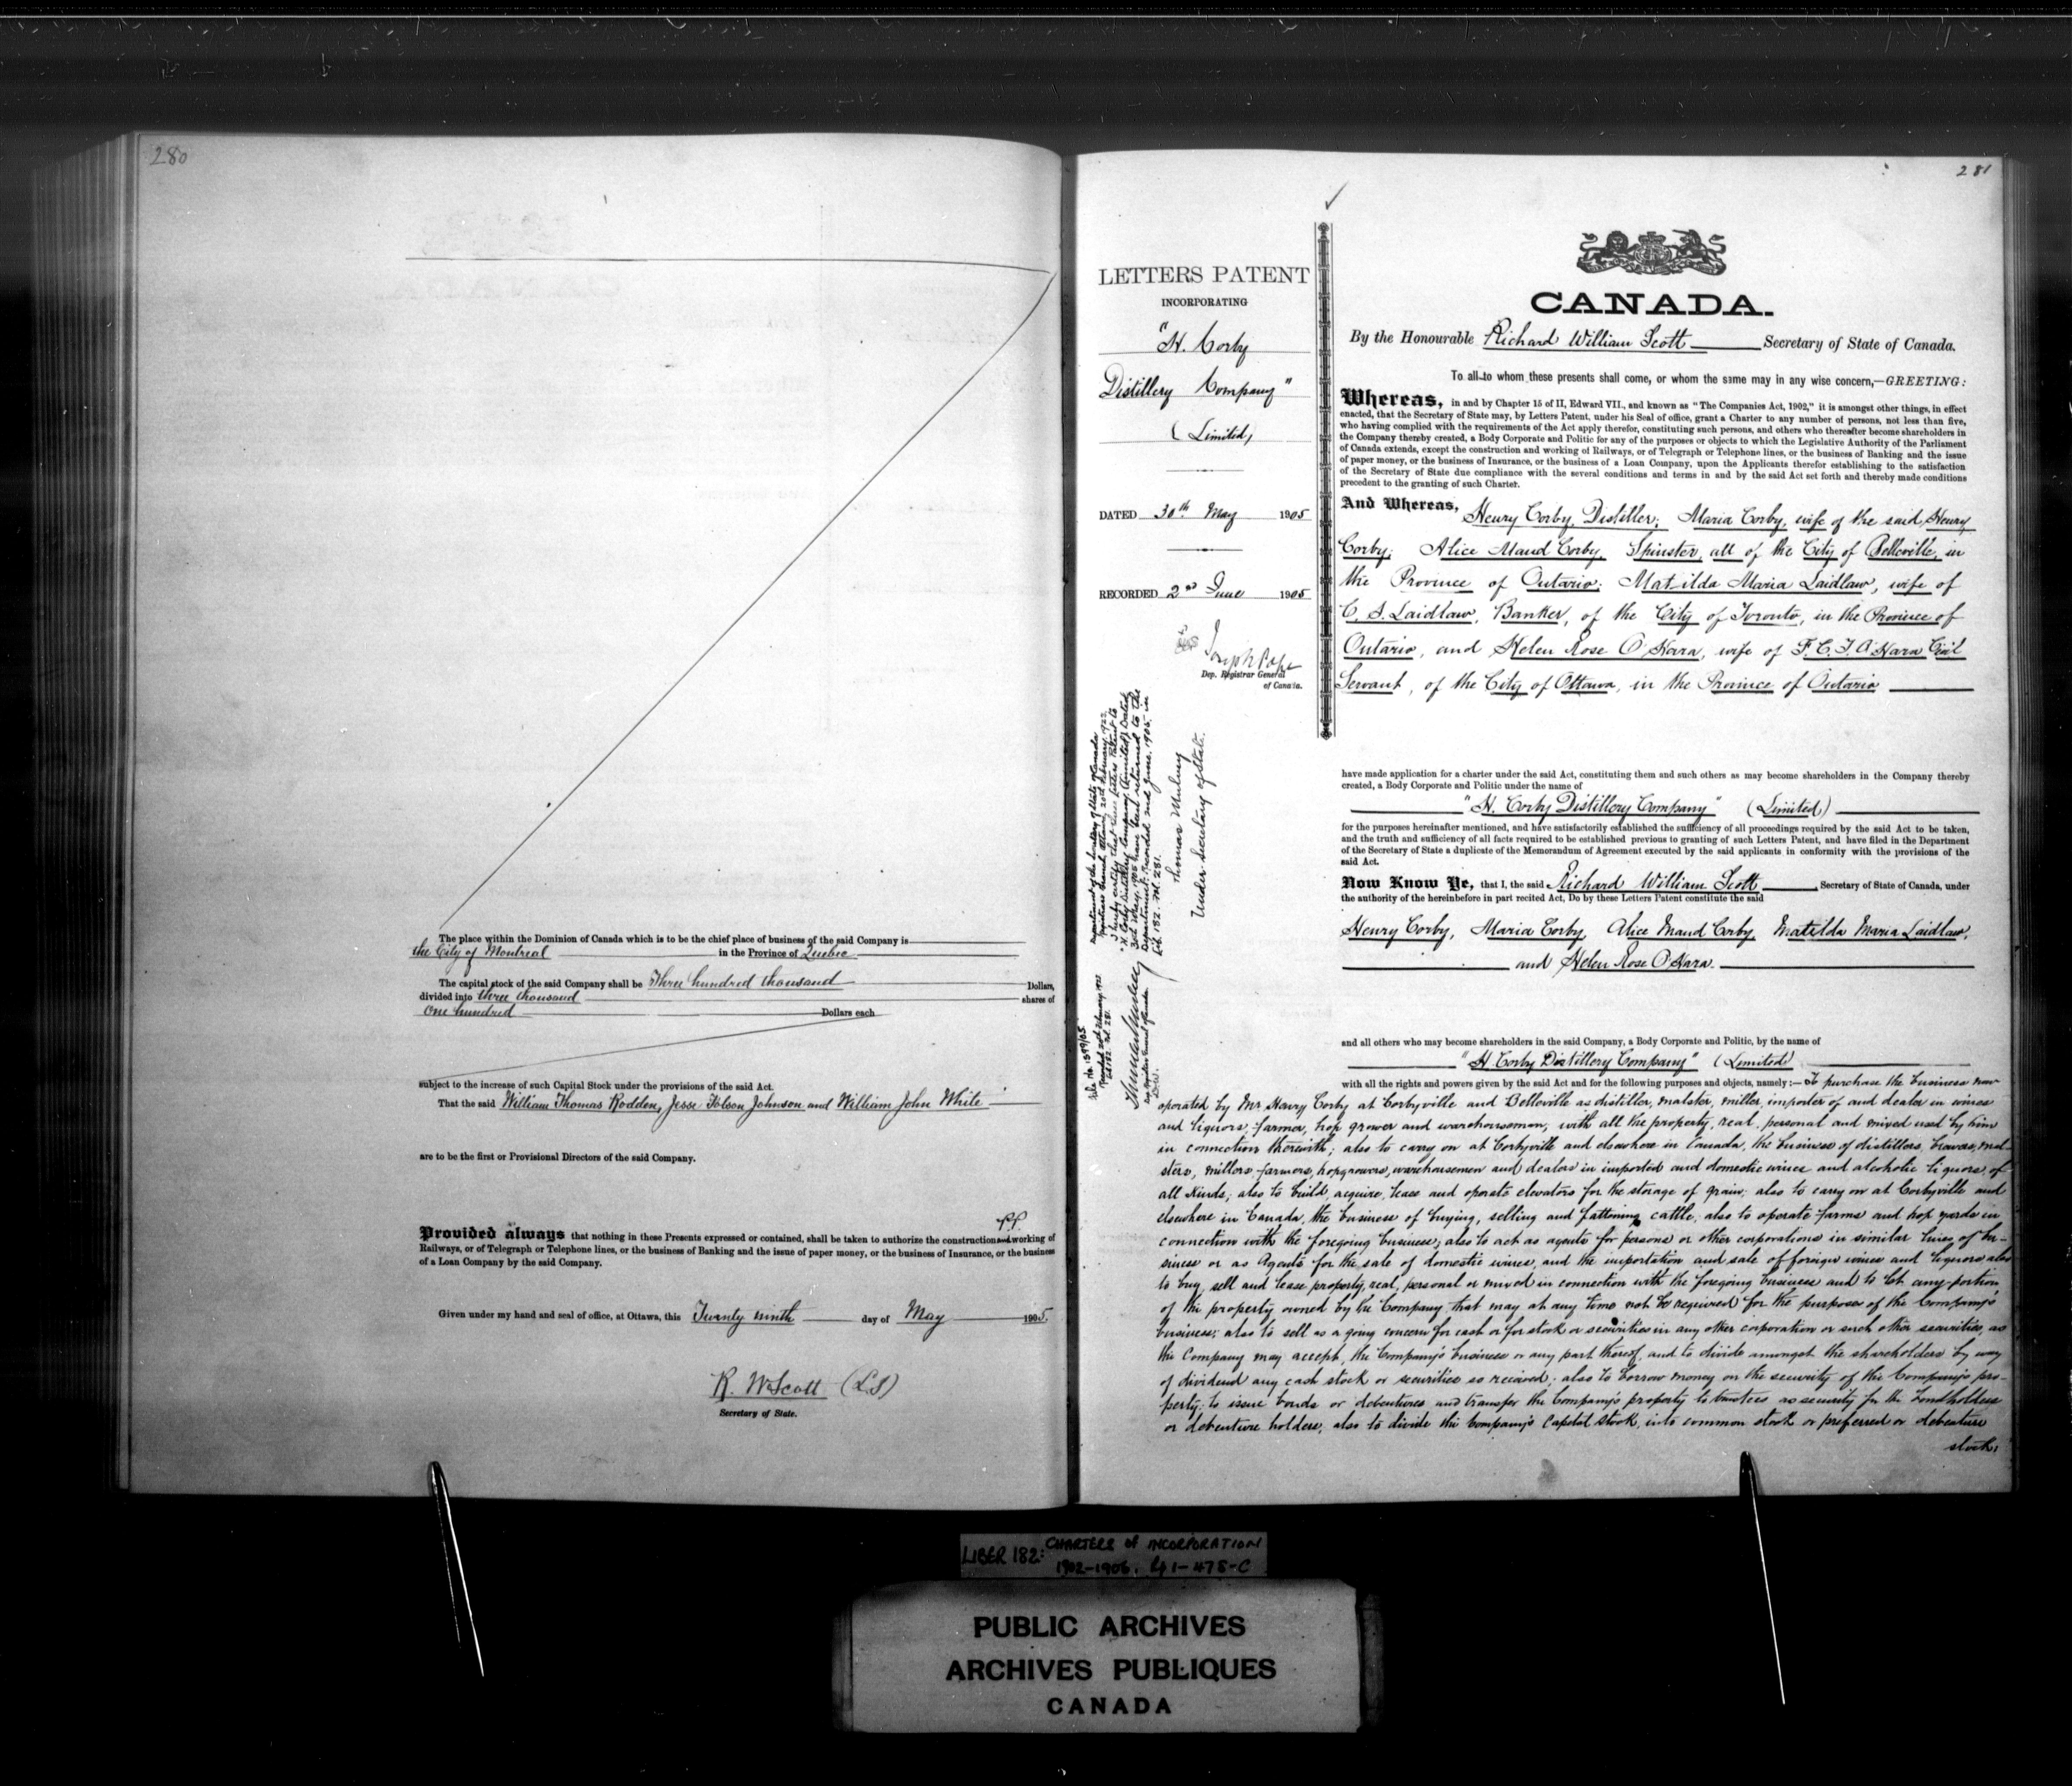 280
The place within the Dominion of Canada which is to be the chief place of business of the said Company is
the City of Montreal in the Province of Quebec
The capital stock of the said Company shall be Three hundred thousand Dollars,
divided into three thousand shares of
One hundred Dollars each
subject to the increase of such Capital Stock under the provisions of the said Act.
That the said William Thomas Rodden, Jesse Tolson Johnson and William John White
are to be the first or Provisional Directors of the said Company.
Provided always that nothing in these Presents expressed or contained, shall be taken to authorize the construction and working of
Railways, or of Telegraph or Telephone lines, or the business of Banking and the issue of paper money, or the business of Insurance, or the business
of a Loan Company by the said Company.
Given under my hand and seal of office, at Ottawa, this Twenty ninth day of May 1905.
R. W. Scott (L.S)
Secretary of State.
281
LETTERS PATENT
INCORPORATING
"H. Corby
Distillery Company"
(Limited)
DATED 30th May 1905
RECORDED 2nd June 1905
Joseph Pope
Dep. Registrar General
of Canada.
Department of the Secretary of State of Canada
Ottawa, 20th February, 1923
I hereby certify that these Letters Patent to
"H. Corby Distillery Company (Limited)" dated
30th May, 1905 have been returned to the
Department. Recorded 2nd June, 1905. in
Lib. 182. Fol. 281.
Thomas Mulvey
Under-Secretary of State.
File No. 1899/05
Recorded 20th February, 1923
Lib 182. Fol. 281.
Thomas Mulvey
CANADA.
By the Honourable Richard William Scott Secretary of State of Canada.
To all to whom these presents shall come, or whom the same may in any wise concern,—GREETING:
Whereas, in and by Chapter 15 of II, Edward VII., and known as "The Companies Act, 1902," it is amongst other things, in effect
enacted, that the Secretary of State may, by Letters Patent, under his Seal of office, grant a Charter to any number of persons, not less than five,
who having complied with the requirements of the Act apply therefor, constituting such persons, and others who thereafter become shareholders in
the Company thereby created, a Body Corporate and Politic for any of the purposes or objects to which the Legislative Authority of the Parliament
of Canada extends, except the construction and working of Railways, or of Telegraph or Telephone lines, or the business of Banking and the issue
of paper money, or the business of Insurance, or the business of a Loan Company, upon the Applicants therefor establishing to the satisfaction
of the Secretary of State due compliance with the several conditions and terms in and by the said Act set forth and thereby made conditions
precedent to the granting of such Charter.
And Whereas, Henry Corby, Distiller; Maria Corby, wife of the said Henry
Corby; Alice Maud Corby, Spinster, all of the City of Belleville, in
the Province of Ontario; Matilda Maria Laidlaw, wife of
C. S. Laidlaw, Banker, of the City of Toronto, in the Province of
Ontario, and Helen Rose O'Hara, wife of F. C. T. O'Hara Civil
Servant, of the City of Ottawa, in the Province of Ontario
have made application for a charter under the said Act, constituting them and such others as may become shareholders in the Company thereby
created, a Body Corporate and Politic under the name of
"H. Corby Distillery Company" (Limited)
for the purposes hereinafter mentioned, and have satisfactorily established the sufficiency of all proceedings required by the said Act to be taken,
and the truth and sufficiency of all facts required to be established previous to granting of such Letters Patent, and have filed in the Department
of the Secretary of State a duplicate of the Memorandum of Agreement executed by the said applicants in conformity with the provisions of the
said Act.
Now Know Ye, that I, the said Richard William Scott, Secretary of State of Canada, under
the authority of the hereinbefore in part recited Act, Do by these Letters Patent constitute the said
Henry Corby, Maria Corby, Alice Maud Corby, Matilda Maria Laidlaw,
and Helen Rose O'Hara.
and all others who may become shareholders in the said Company, a Body Corporate and Politic, by the name of
"H. Corby Distillery Company" (Limited)
with all the rights and powers given by the said Act and for the following purposes and objects, namely:— To purchase the business now
operated by Mr Henry Corby at Corbyville and Belleville as distiller, malster, miller, importer of and dealer in wines
and liquors, farmer, hop grower and warehouseman, with all the property, real, personal and mixed used by him
in connection therewith; also to carry on at Corbyville and elsewhere in Canada, the business of distillers, brewers, mal-
sters, millers, farmers, hopgrowers, warehousemen and dealers in imported and domestic wines and alcoholic liquors of
all kinds; also to build, acquire, lease and operate elevators for the storage of grain; also to carry on at Corbyville and
elsewhere in Canada, the business of buying, selling and fattening cattle, also to operate farms and hop yards in
connection with the foregoing business; also to act as agents for persons or other corporations in similar lines of bu-
siness or as Agents for the sale of domestic wines, and the importation and sale of foreign wines and liquors also
to buy, sell and lease property, real, personal or mixed in connection with the foregoing business and to let any portion
of the property owned by the Company that may at any time not be required for the purposes of the Company's
business; also to sell as a going concern for cash or for stock or securities in any other corporation or such other securities, as
the Company may accept, the Company's business or any part thereof, and to divide amongst the shareholders by way
of dividend any cash stock or securities so received; also to borrow money on the security of the Company's pro-
perty; to issue bonds or debentures and transfer the Company's property to trustees as security for the bondholders
or debenture holders, also to divide the Company's Capital stock, into common stock or preferred or debenture
stock;
LIBER 182: CHARTERS of INCORPORATION
1902-1906.
PUBLIC ARCHIVES
ARCHIVES PUBLIQUES
CANADA